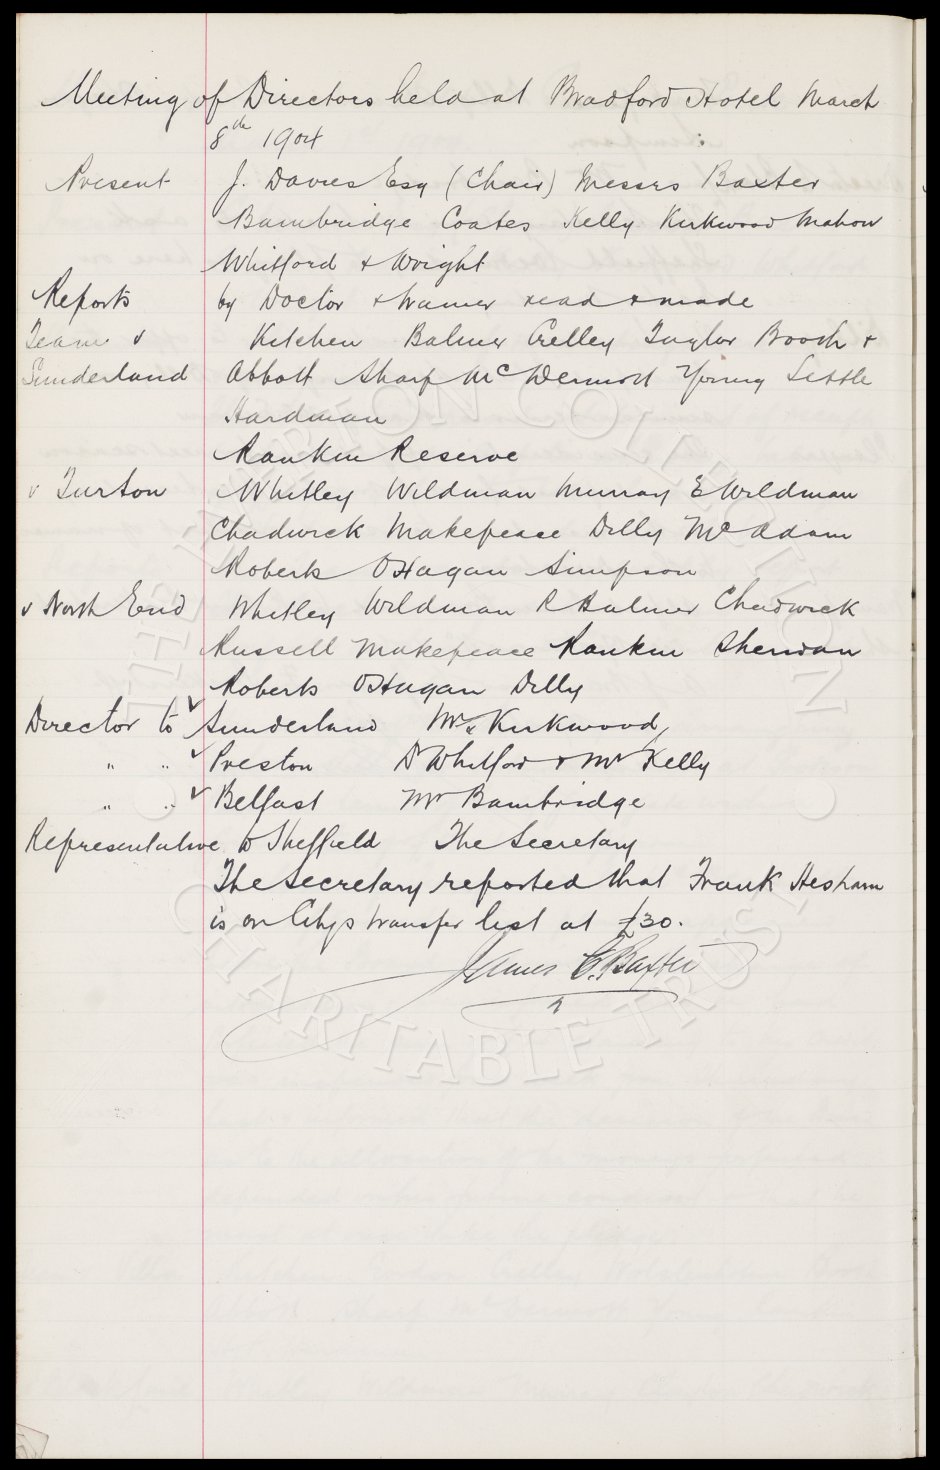 Meeting of Directors held at Bradford Hotel March
8th 1904
Present J. Davies Esq (Chair) Messrs Baxter
Bambridge Coates Kelly Kirkwood Mahon
Whitford & Wright
Reports by Doctor & trainer read & made
Team v Kitchen Balmer Crelley Taylor Booth &
Sunderland Abbott Sharp McDermott Young Settle
Hardman
Rankin Reserve
v Turton Whitley Wildman Murray E Wildman
Chadwick Makepeace Dilly McAdam
Roberts OHagan Simpson
v North End Whitley Wildman R Balmer Chadwick
Russell Makepeace Rankin Sheridan
Roberts OHagan Dilly
Director to Sunderland Mr Kirkwood
" " Preston Dr Whitford & Mr Kelly
" " Belfast Mr Bambridge
Representative to Sheffield The Secretary
The Secretary reported that Frank Hesham
is on Citys transfer list at £30.
James C. Baxter
THE EVERTON COLLECTION
CHARITABLE TRUST